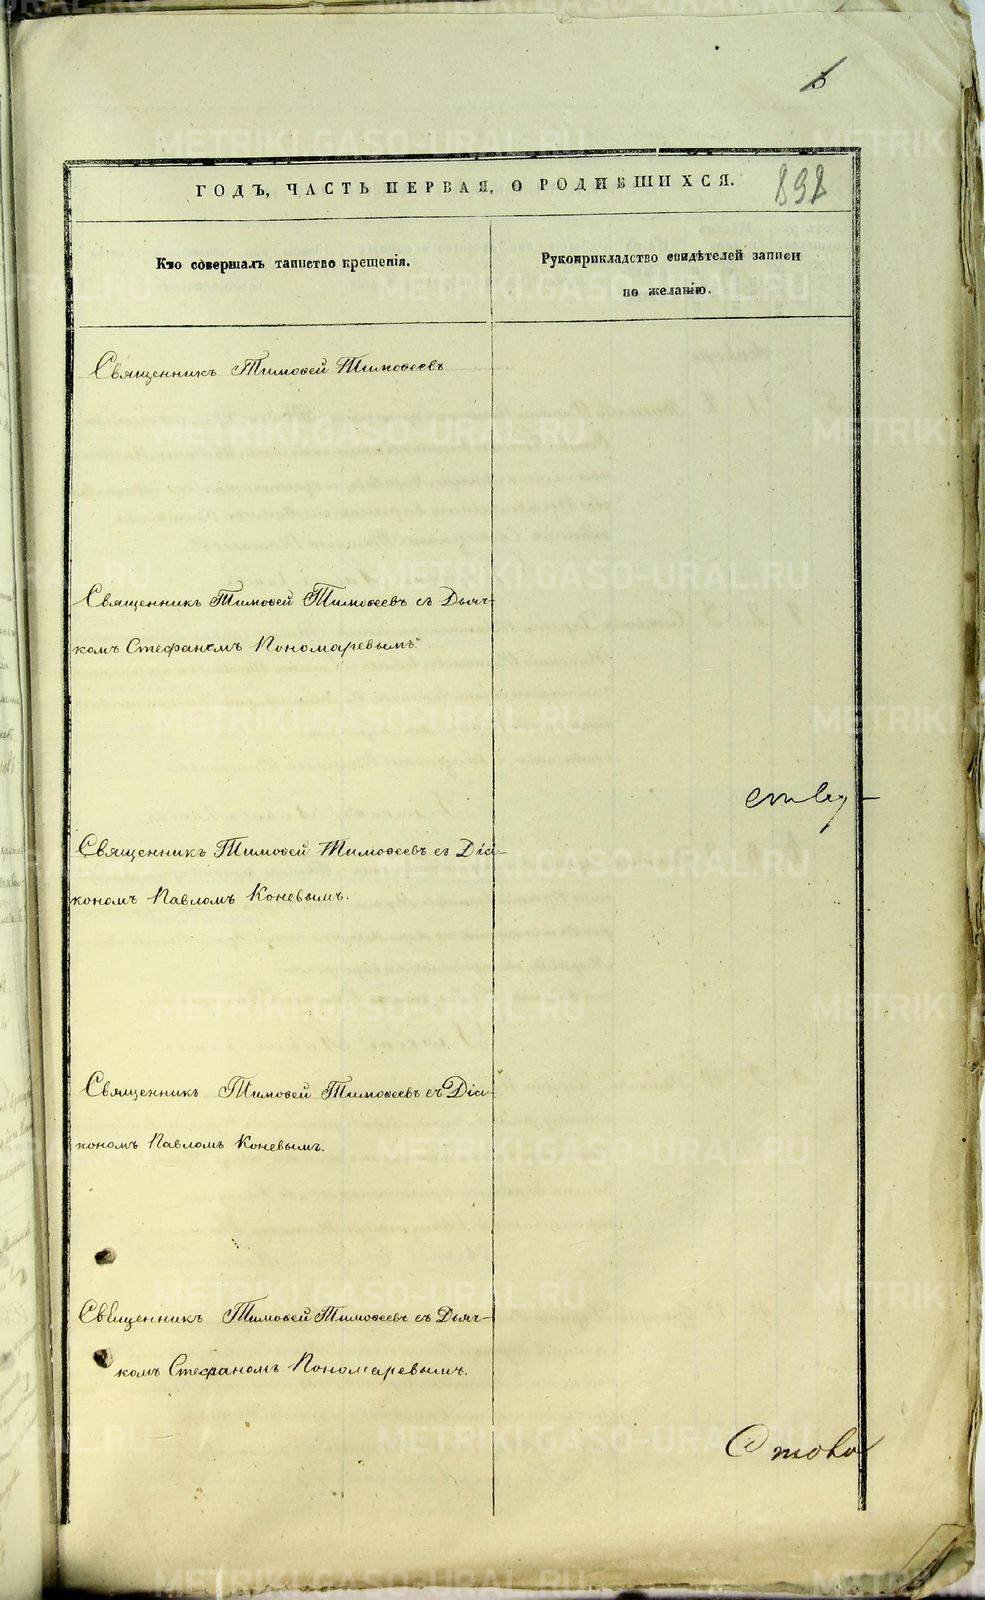 ГОДЪ, ЧАСТЬ ПЕРВАЯ, О РОДИВШИХСЯ.
898
Кто совершалъ таинство крещенія.
Рукоприкладство свидѣтелей записи
по желанію.
Священникъ Тимоѳей Тимоѳеевъ
Священникъ Тимоѳей Тимоѳеевъ съ Дьяч-
комъ Стефаномъ Пономаревымъ
Священникъ Тимоѳей Тимоѳеевъ съ Діа-
кономъ Павломъ Коневымъ.
Священникъ Тимоѳей Тимоѳеевъ съ Діа-
кономъ Павломъ Коневымъ.
Священникъ Тимоѳей Тимоѳеевъ съ Дьяч-
комъ Стефаномъ Пономаревымъ.
METRIKI.GASO-URAL.RU